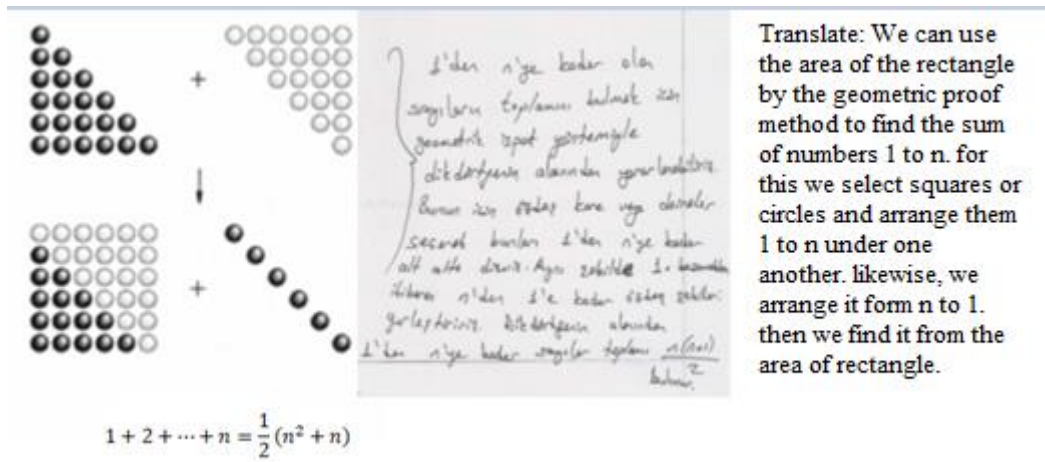 1'den n'ye kadar olan
sayıların toplamını bulmak için
geometrik ispat yöntemiyle
dikdörtgenin alanından yararlanabiliriz.
Bunun için özdeş kare veya daireler
seçerek bunları 1'den n'ye kadar
alt alta dizeriz. Aynı şekilde 1.
itibaren n'den 1'e kadar özdeş şekiller
yerleştiririz. Dikdörtgenin alanından
1'den n'ye kadar sayılar toplamı n(n+1)/2
bulunur.
1 + 2 + ⋯ + n = 1/2 (n² + n)
Translate: We can use
the area of the rectangle
by the geometric proof
method to find the sum
of numbers 1 to n. for
this we select squares or
circles and arrange them
1 to n under one
another. likewise, we
arrange it form n to 1.
then we find it from the
area of rectangle.